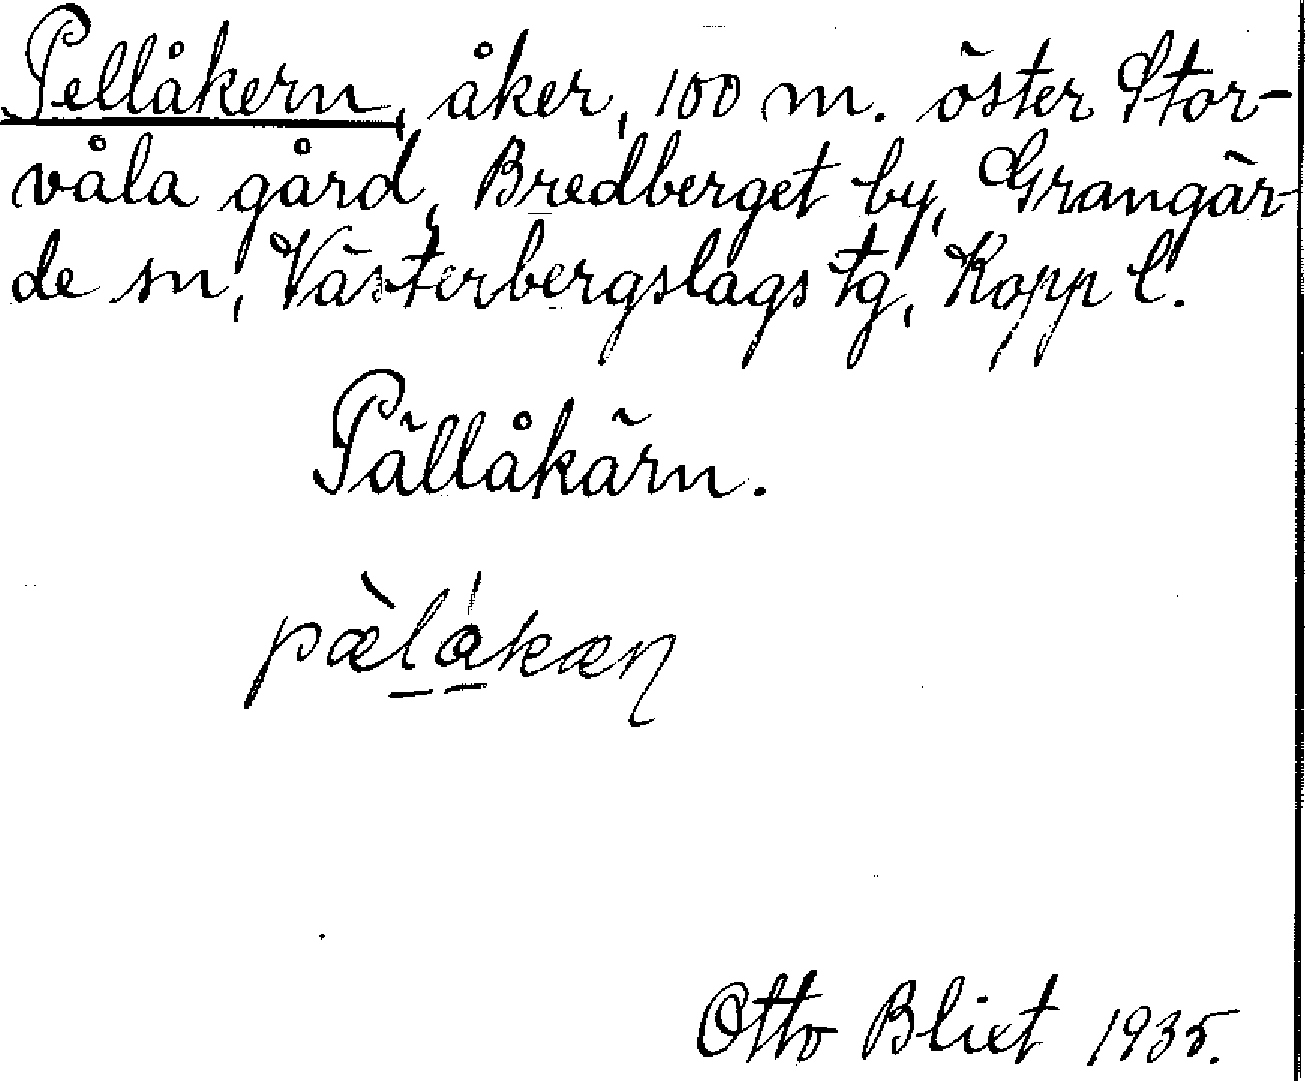 Pellåkern, åker, 100 m. öster Stor-
våla gård, Bredberget by, Grangär-
de sn, Västerbergslags tg, Kopp l.
Pällåkärn.
pæ̀låkæɳ
Otto Blixt 1935.